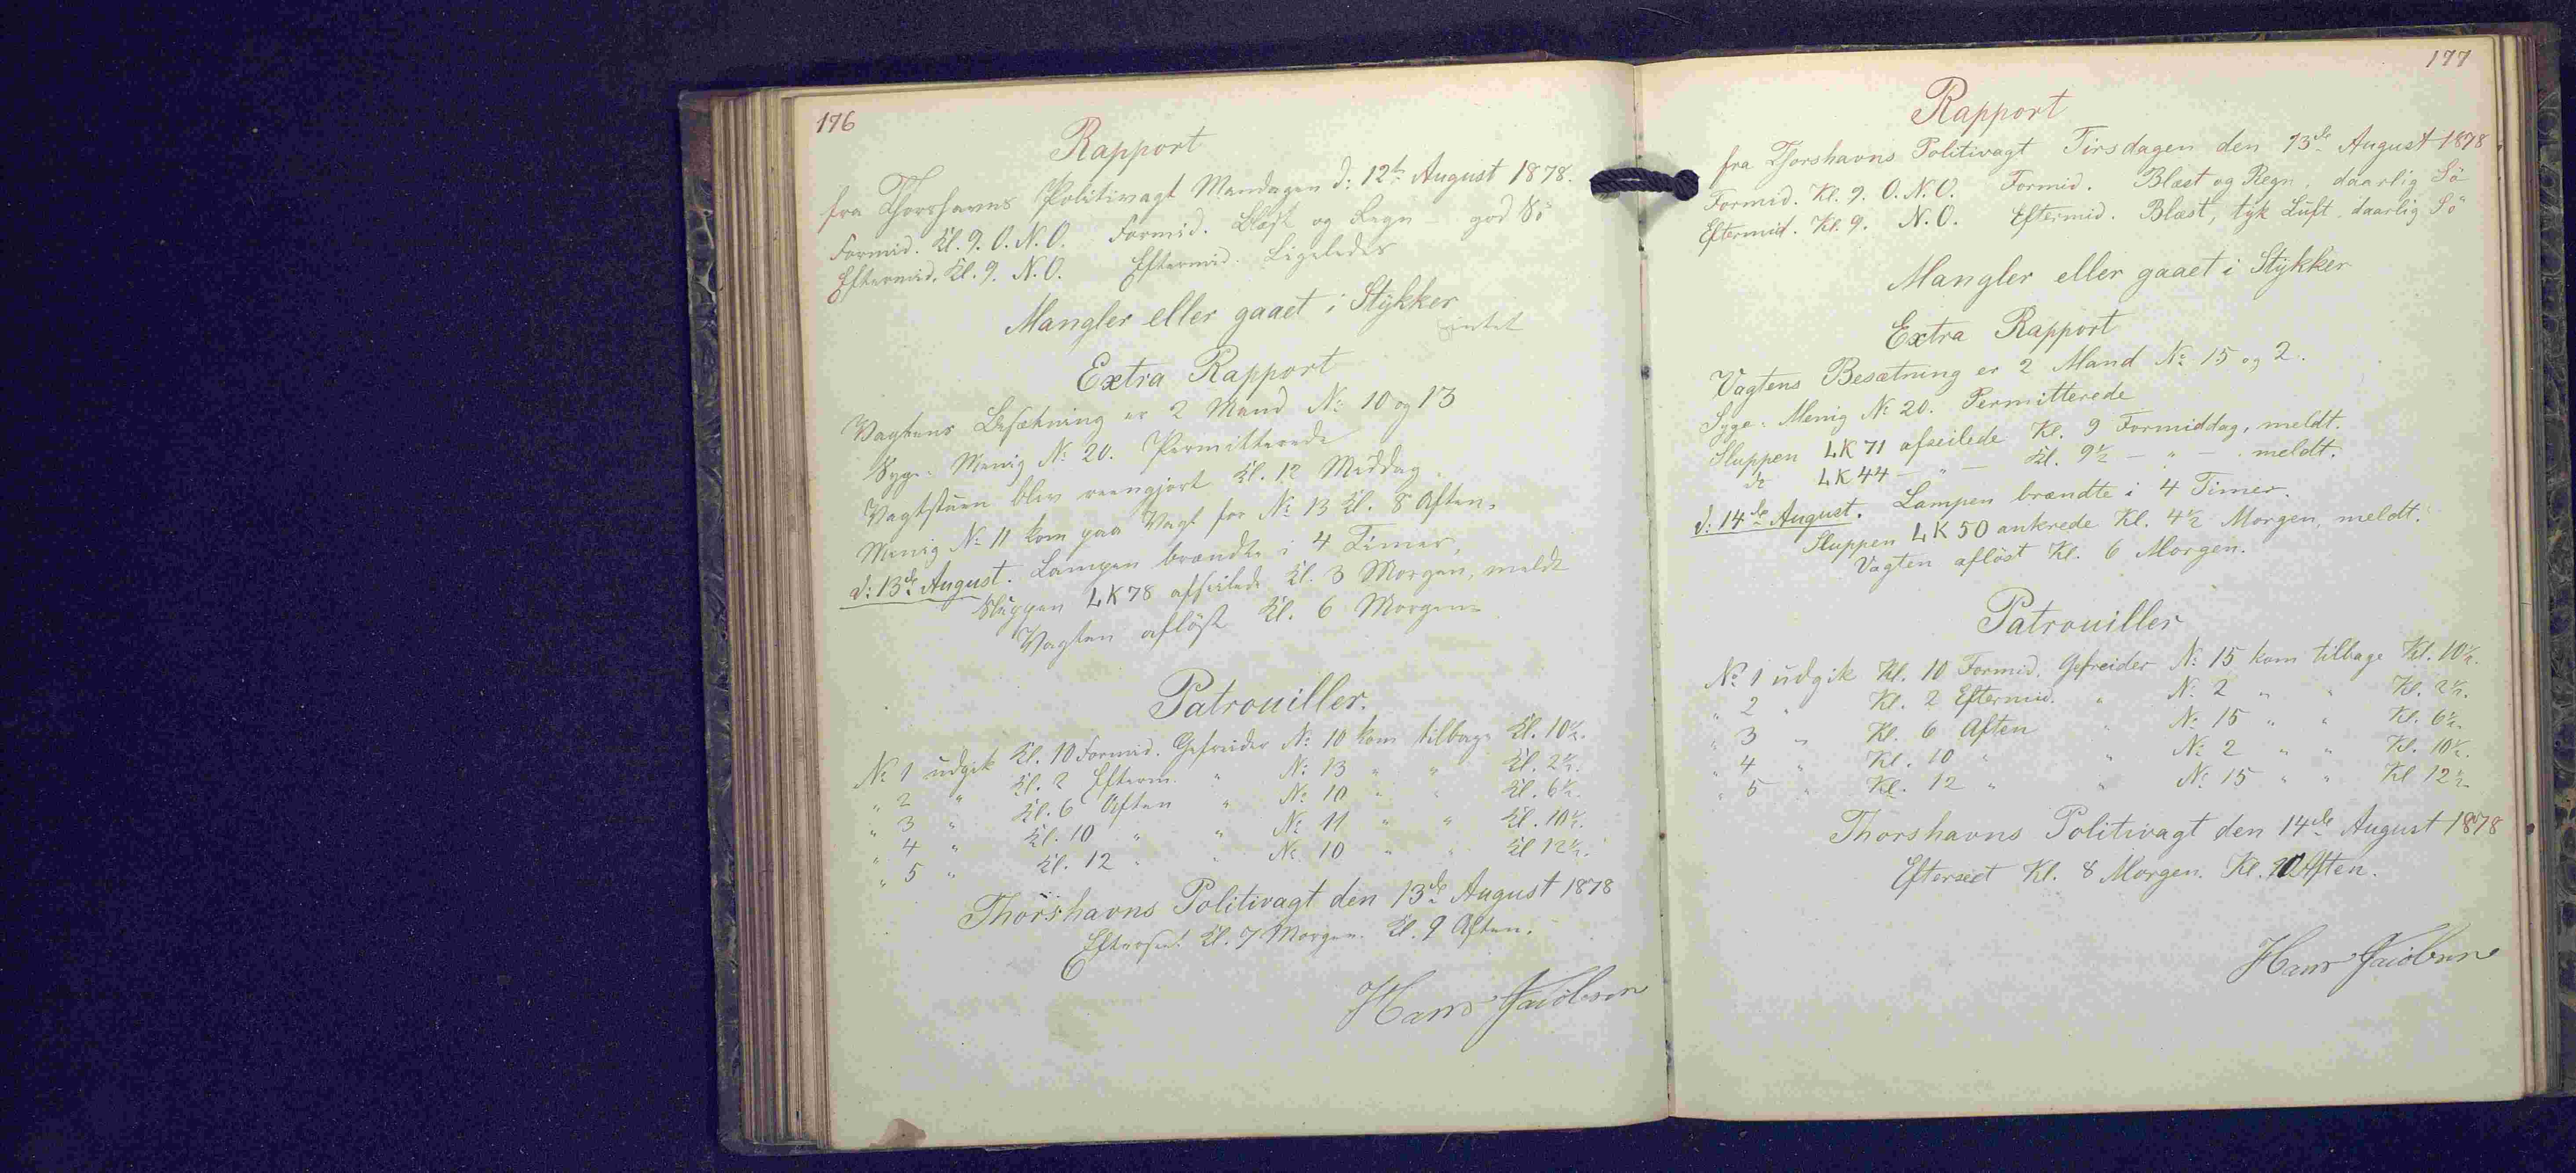 176
Rapport
fra Thorshavns Politivagt Mandagen d: 12te August 1878.
Formid. Kl. 9. O.N.O. Formid. Blæst og Regn - god Sö
Eftermid. Kl. 9. N.O. Eftermid. Ligeledes
Mangler eller gaaet i Stÿkker
intet
Extra Rapport
Vagtens Besætning er 2 Mand No 10 og 13
Syge: Menig No 20. Permitterede
Vagtstüen blev reengjort Kl. 12 Middag.
Menig No 11 kom paa Vagt for No 13 Kl. 8 Aften.
d: 13de August. Lampen brændte i 4 Timer,
Slüppen LK 78 afseilede Kl. 3 Morgen, meldt
Vagten aflöst Kl. 6 Morgen
Patrouiller.
No 1 üdgik Kl. 10 Formid. Gefreider No 10 kom tilbage Kl. 10½.
" 2 " Kl. 2 Efterm. " No 13 " " Kl. 2½.
" 3 " Kl. 6 Aften " No 10 " " Kl. 6½.
" 4 " Kl. 10 " " No 11 " " Kl. 10½.
" 5 " Kl. 12 " " No 10 " " Kl 12½.
Thorshavns Politivagt den 13de August 1878
Efterseet Kl. 7 Morgen. Kl. 9 Aften.
Hans Jacobsen
177
Rapport
fra Thorshavns Politivagt Tirsdagen den 13de August 1878
Formid. Kl. 9. O.N.O. Formid. Blæst og Regn, daarlig Sö
Eftermid. Kl. 9. N.O. Eftermid. Blæst, tyk Lüft daarlig Sö
Mangler eller gaaet i Stÿkker
Extra Rapport
Vagtens Besætning er 2 Mand No 15 og 2.
Syge: Menig No 20. Permitterede
Sluppen LK 71 afseilede Kl. 9 Formiddag, meldt.
do LK 44 - " - Kl. 9½ - " - . meldt.
d: 14de August. Lampen brændte i 4 Timer.
Sluppen LK 50 ankrede Kl. 4½ Morgen, meldt.
Vagten aflöst Kl. 6 Morgen.
Patrouiller
No 1 üdgik Kl. 10 Formid. Gefreider No 15 kom tilbage Kl. 10½.
" 2 " Kl. 2 Eftermid. " No 2 " " Kl. 2½.
" 3 " Kl. 6 Aften " No 15 " " Kl. 6½.
" 4 " Kl. 10 " " No 2 " " Kl. 10½.
" 5 " Kl. 12 " " No 15 " " Kl 12½
Thorshavns Politivagt den 14de August 1878
Efterseet Kl. 8 Morgen. Kl. 10 Aften.
Hans Jacobsen